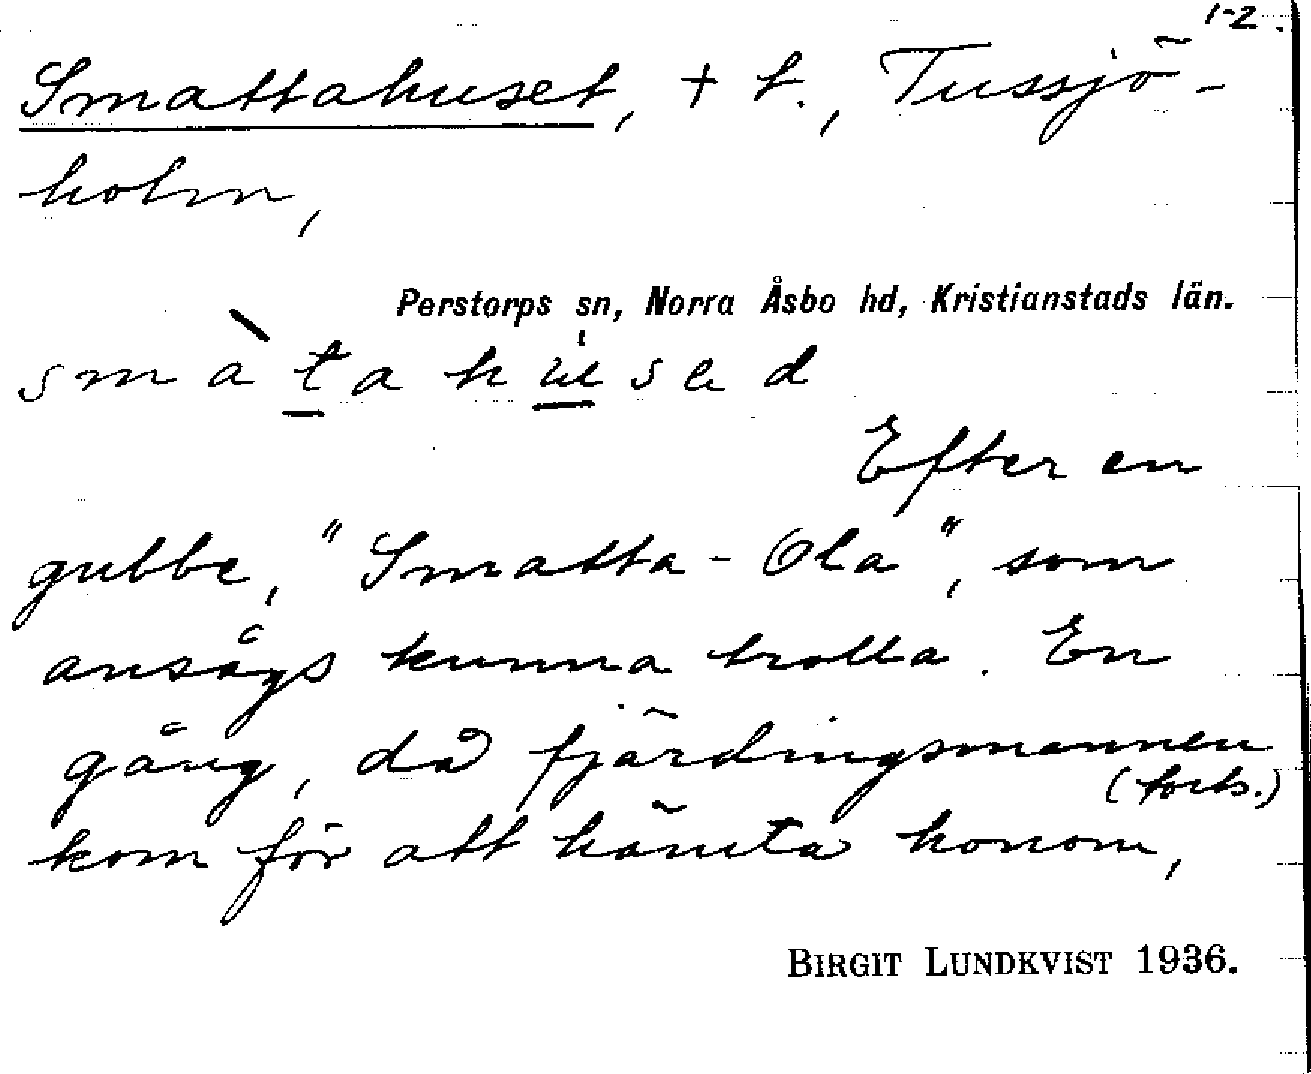 1-2.
Smattahuset, + t., Tussjö-
holm,
Perstorps sn, Norra Åsbo hd, Kristianstads län.
smàtahúsed
Efter en
gubbe, "Smatta-Ola", som
ansågs kunna trolla. En
gång, då fjärdingsmannen
kom för att hämta honom,
(forts.)
BIRGIT LUNDKVIST 1936.